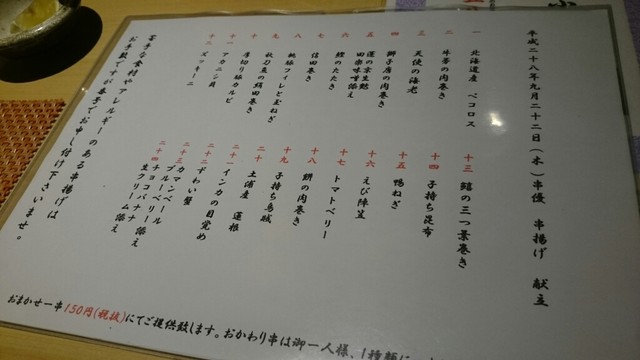 平成二十八年九月二十二日(木)串優 串揚げ 献立
一 北海道産 ペコロス
二 牛蒡の肉巻き
三 天使の海老
四 獅子唐の肉巻き
五 蓮の京生麩 田楽味噌添え
六 鰹のたたき
七 信田巻き
八 桃豚フィレと玉ねぎ
九 秋刀魚の絹田巻き
十 厚切り豚カルビ
十一 アカニシ貝
十二 ズッキーニ
十三 鱚の三つ葉巻き
十四 子持ち昆布
十五 鴨ねぎ
十六 えび陣笠
十七 トマトベリー
十八 餅の肉巻き
十九 子持ち烏賊
二十 土浦産 蓮根
二十一 インカの目覚め
二十二 ずわい蟹
二十三 カマンベール ブルーベリー添え
二十四 チョコバナナ 生クリーム添え
苦手な食材やアレルギーのある串揚げは
お手数ですが春子でお申し付け下さいませ。
おまかせ一串150円(税抜)にてご提供致します。おかわり串は御一人様、1種類に